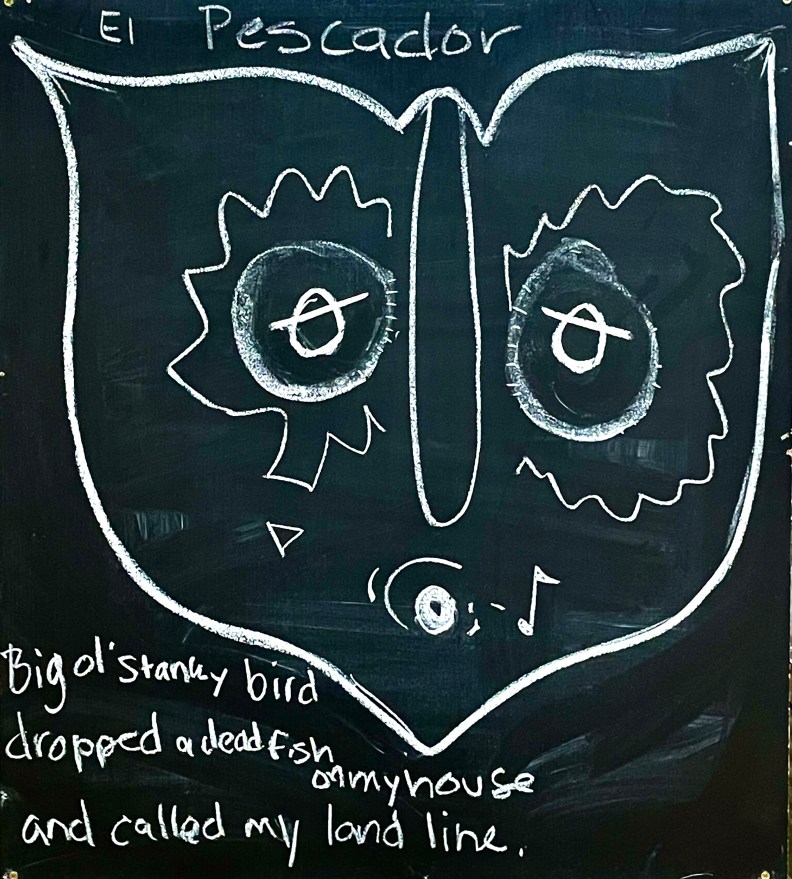 El Pescador
Big ol' stanky bird
dropped a dead fish
on my house
and called my land line.